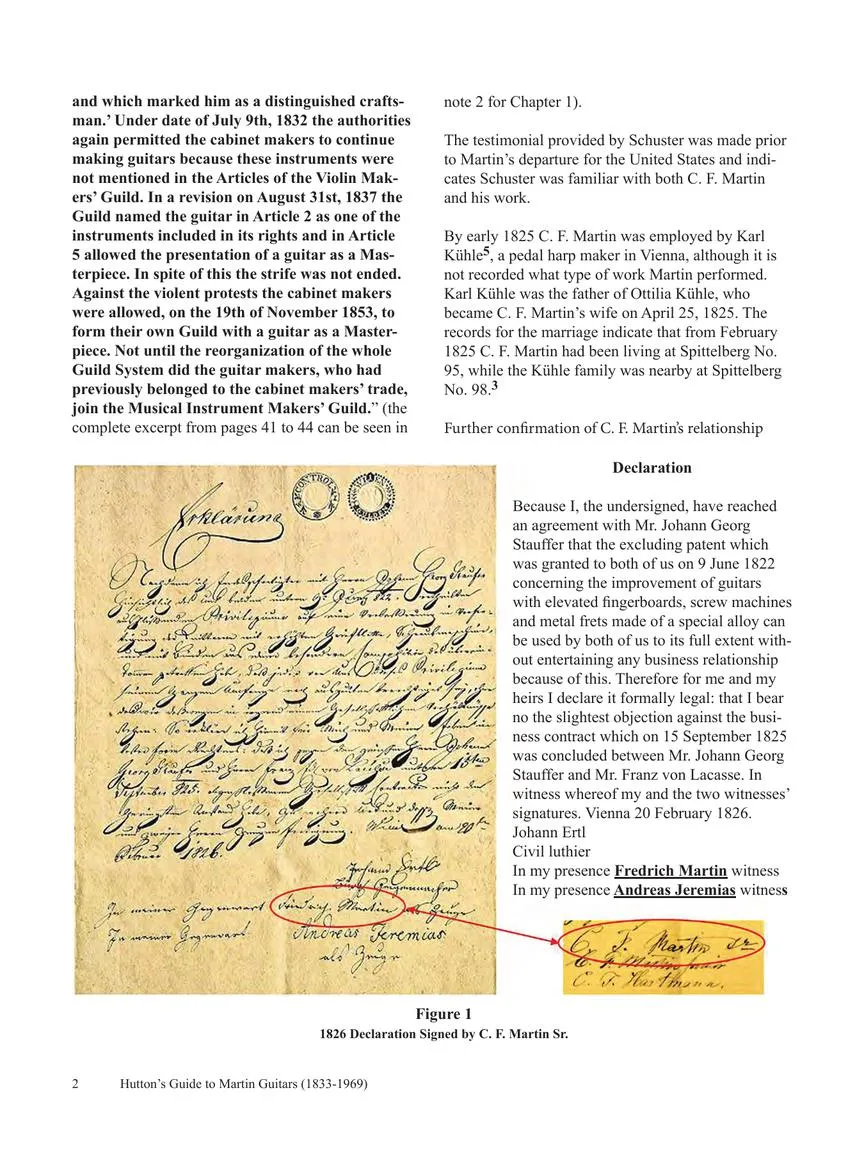 and which marked him as a distinguished crafts-
man.’ Under date of July 9th, 1832 the authorities
again permitted the cabinet makers to continue
making guitars because these instruments were
not mentioned in the Articles of the Violin Mak-
ers’ Guild. In a revision on August 31st, 1837 the
Guild named the guitar in Article 2 as one of the
instruments included in its rights and in Article
5 allowed the presentation of a guitar as a Mas-
terpiece. In spite of this the strife was not ended.
Against the violent protests the cabinet makers
were allowed, on the 19th of November 1853, to
form their own Guild with a guitar as a Master-
piece. Not until the reorganization of the whole
Guild System did the guitar makers, who had
previously belonged to the cabinet makers’ trade,
join the Musical Instrument Makers’ Guild.” (the
complete excerpt from pages 41 to 44 can be seen in
note 2 for Chapter 1).
The testimonial provided by Schuster was made prior
to Martin’s departure for the United States and indi-
cates Schuster was familiar with both C. F. Martin
and his work.
By early 1825 C. F. Martin was employed by Karl
Kühle5, a pedal harp maker in Vienna, although it is
not recorded what type of work Martin performed.
Karl Kühle was the father of Ottilia Kühle, who
became C. F. Martin’s wife on April 25, 1825. The
records for the marriage indicate that from February
1825 C. F. Martin had been living at Spittelberg No.
95, while the Kühle family was nearby at Spittelberg
No. 98.3
Further confirmation of C. F. Martin’s relationship
Erklärung
Johann Ertl
In meiner Gegenwart Friedrich Martin als Zeuge
In meiner Gegenwart Andreas Jeremias
als Zeuge
Declaration
Because I, the undersigned, have reached
an agreement with Mr. Johann Georg
Stauffer that the excluding patent which
was granted to both of us on 9 June 1822
concerning the improvement of guitars
with elevated fingerboards, screw machines
and metal frets made of a special alloy can
be used by both of us to its full extent with-
out entertaining any business relationship
because of this. Therefore for me and my
heirs I declare it formally legal: that I bear
no the slightest objection against the busi-
ness contract which on 15 September 1825
was concluded between Mr. Johann Georg
Stauffer and Mr. Franz von Lacasse. In
witness whereof my and the two witnesses’
signatures. Vienna 20 February 1826.
Johann Ertl
Civil luthier
In my presence Fredrich Martin witness
In my presence Andreas Jeremias witness
C. F. Martin sr
C. F. Martin
C. F. Hartmann.
Figure 1
1826 Declaration Signed by C. F. Martin Sr.
2 Hutton’s Guide to Martin Guitars (1833-1969)